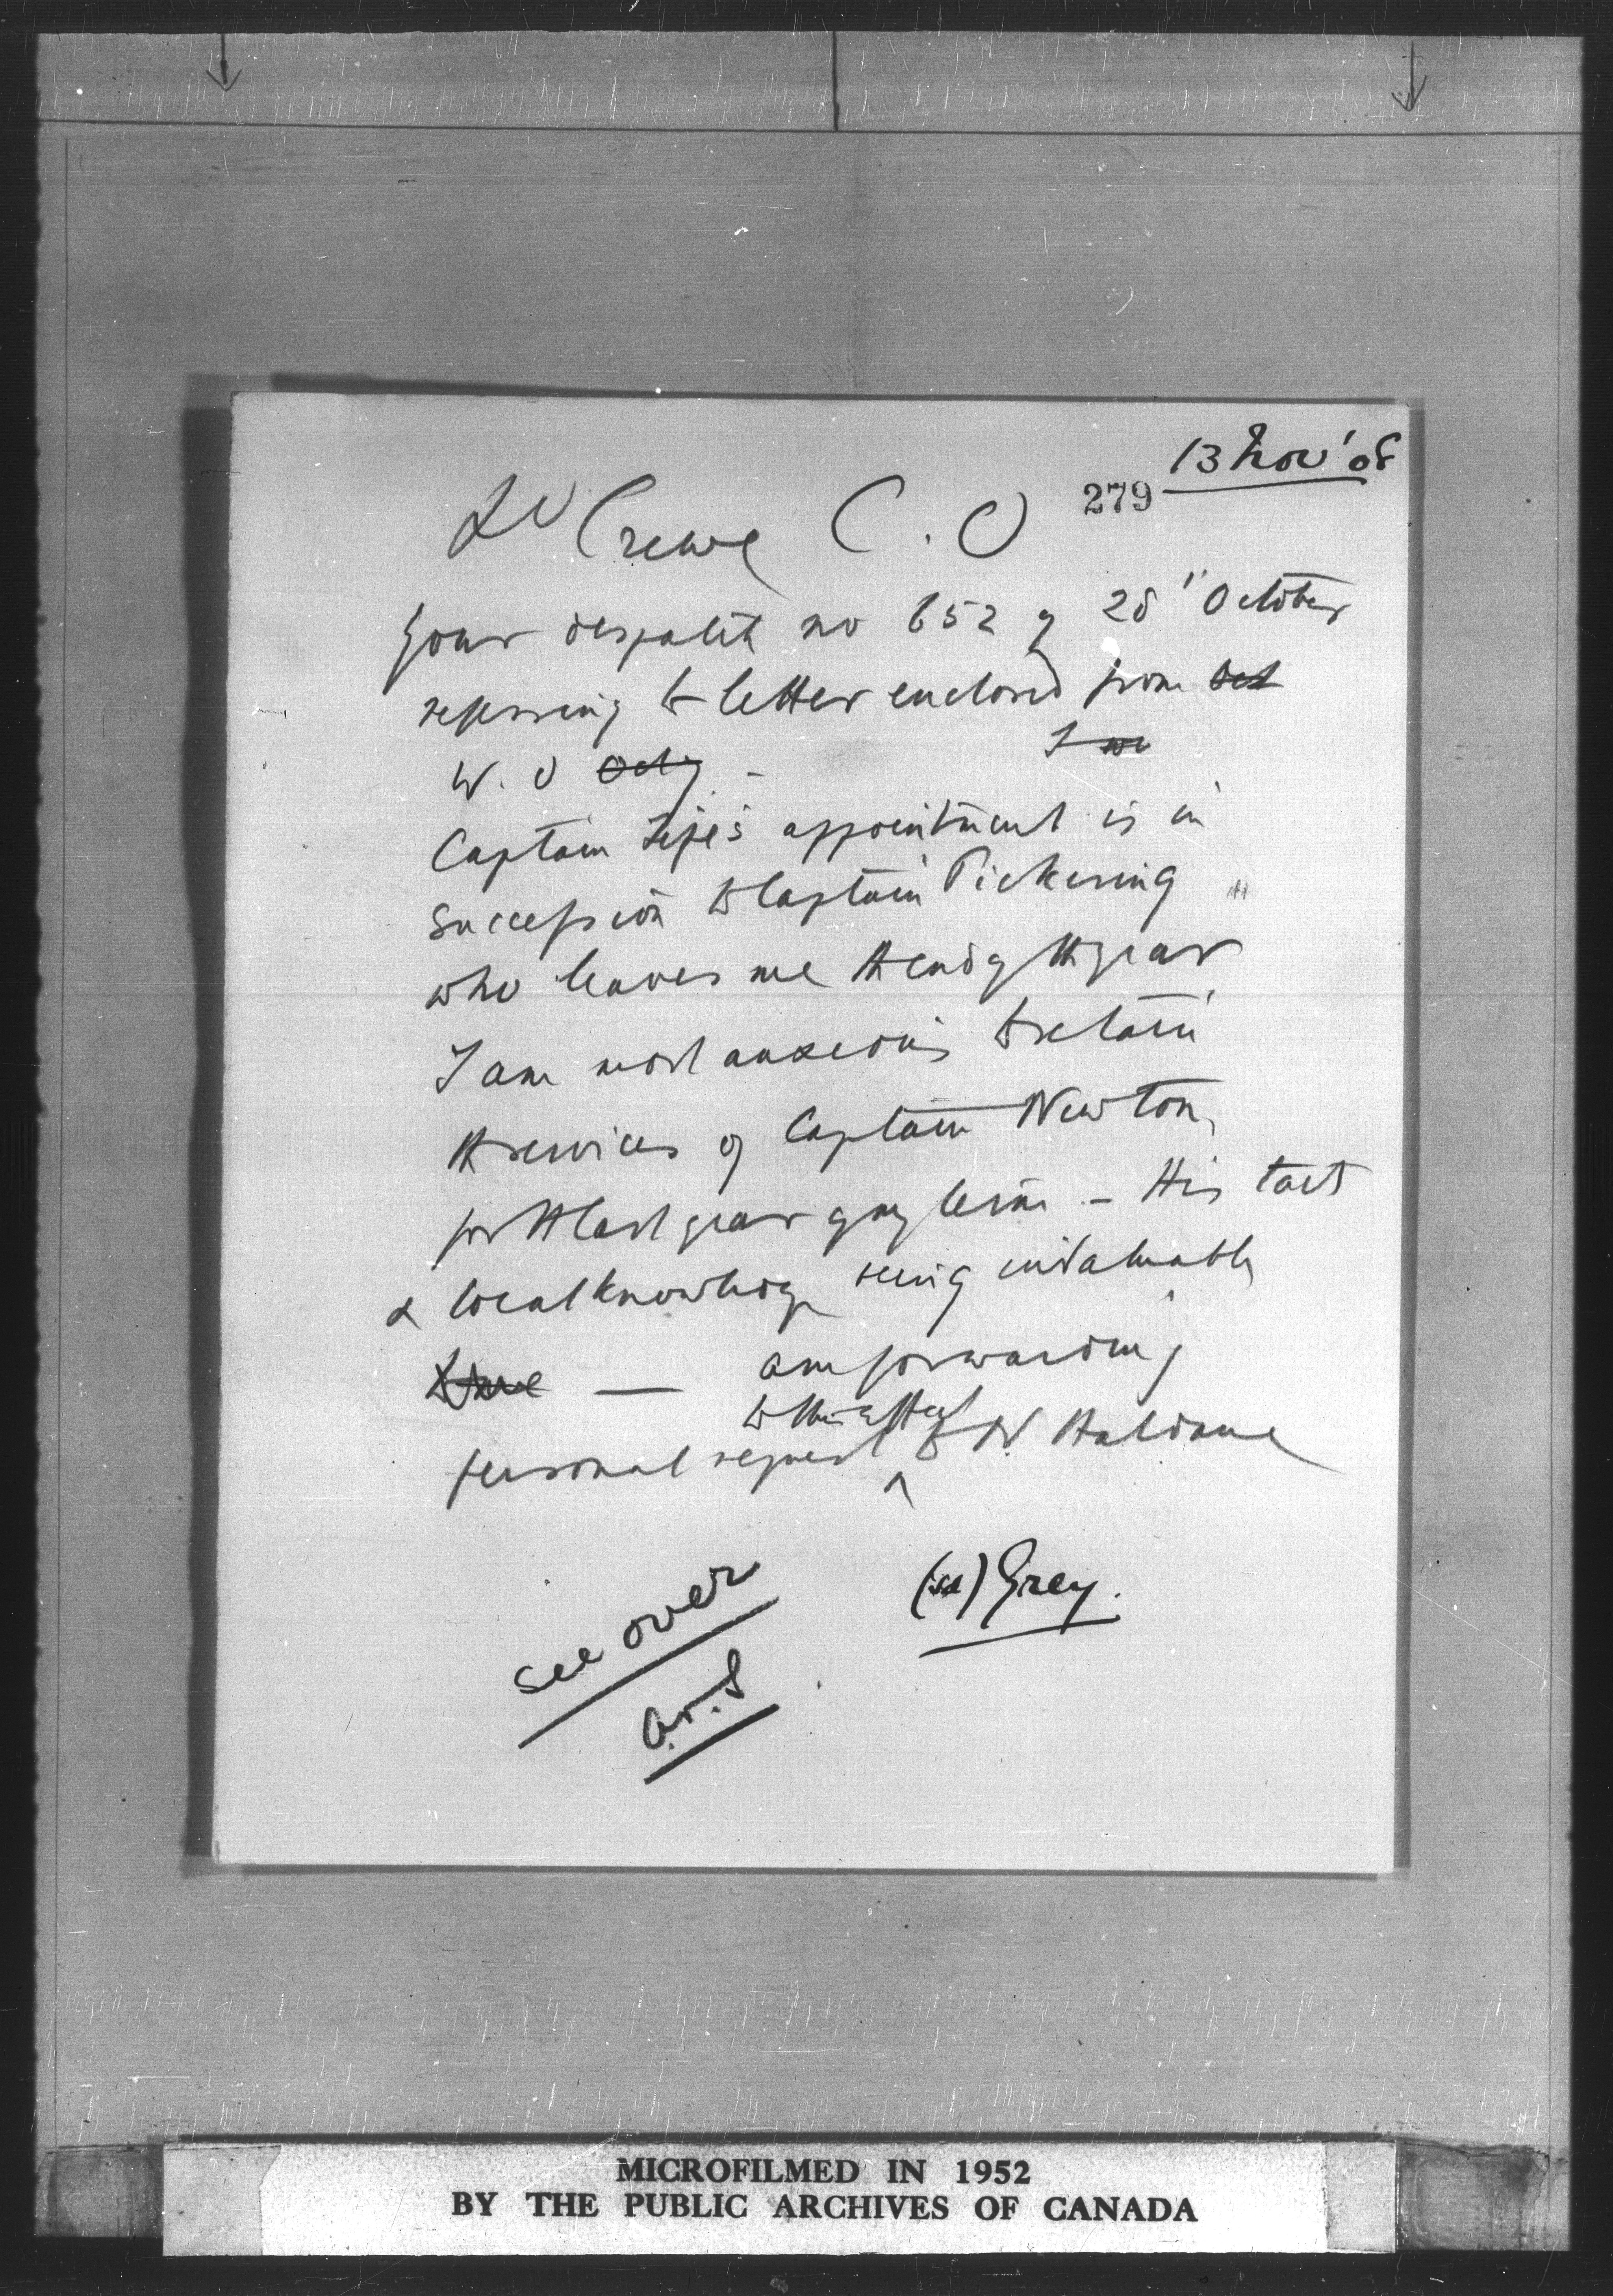 13 Nov '08
279
Ld Crewe C. O
Your despatch no 652 of 28" October
referring to letter enclosed from
W. O
Captain Fife's appointment is in
succession to Captain Pickering
who leaves me the end of the year
I am most anxious to retain
the services of Captain Newton
for the last year of my term - His tact
& local knowledge being invaluable
— am forwarding
to this effect
personal request to Mr Haldane
(sd) Grey.
see over
MICROFILMED IN 1952
BY THE PUBLIC ARCHIVES OF CANADA